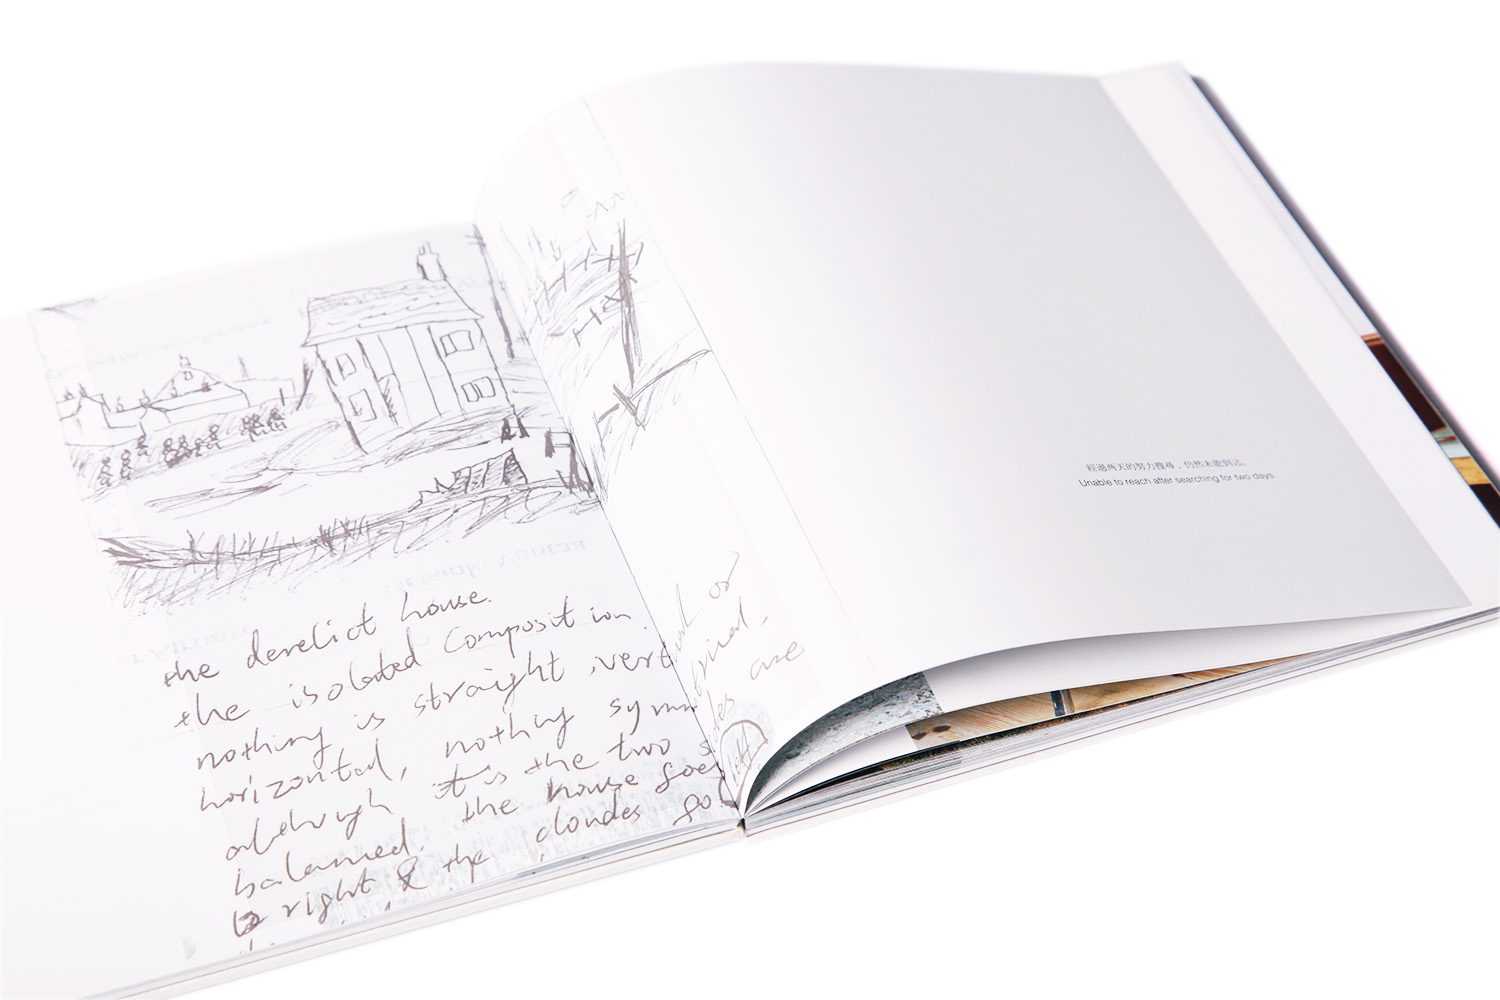 the derelict house.
the isolated composition.
nothing is straight, vert or
horizontal, nothing symm
although it is the two sides are
balanced. the house goes left
right & the cloudes go
經過兩天的努力搜尋，仍然未能到达。
Unable to reach after searching for two days.